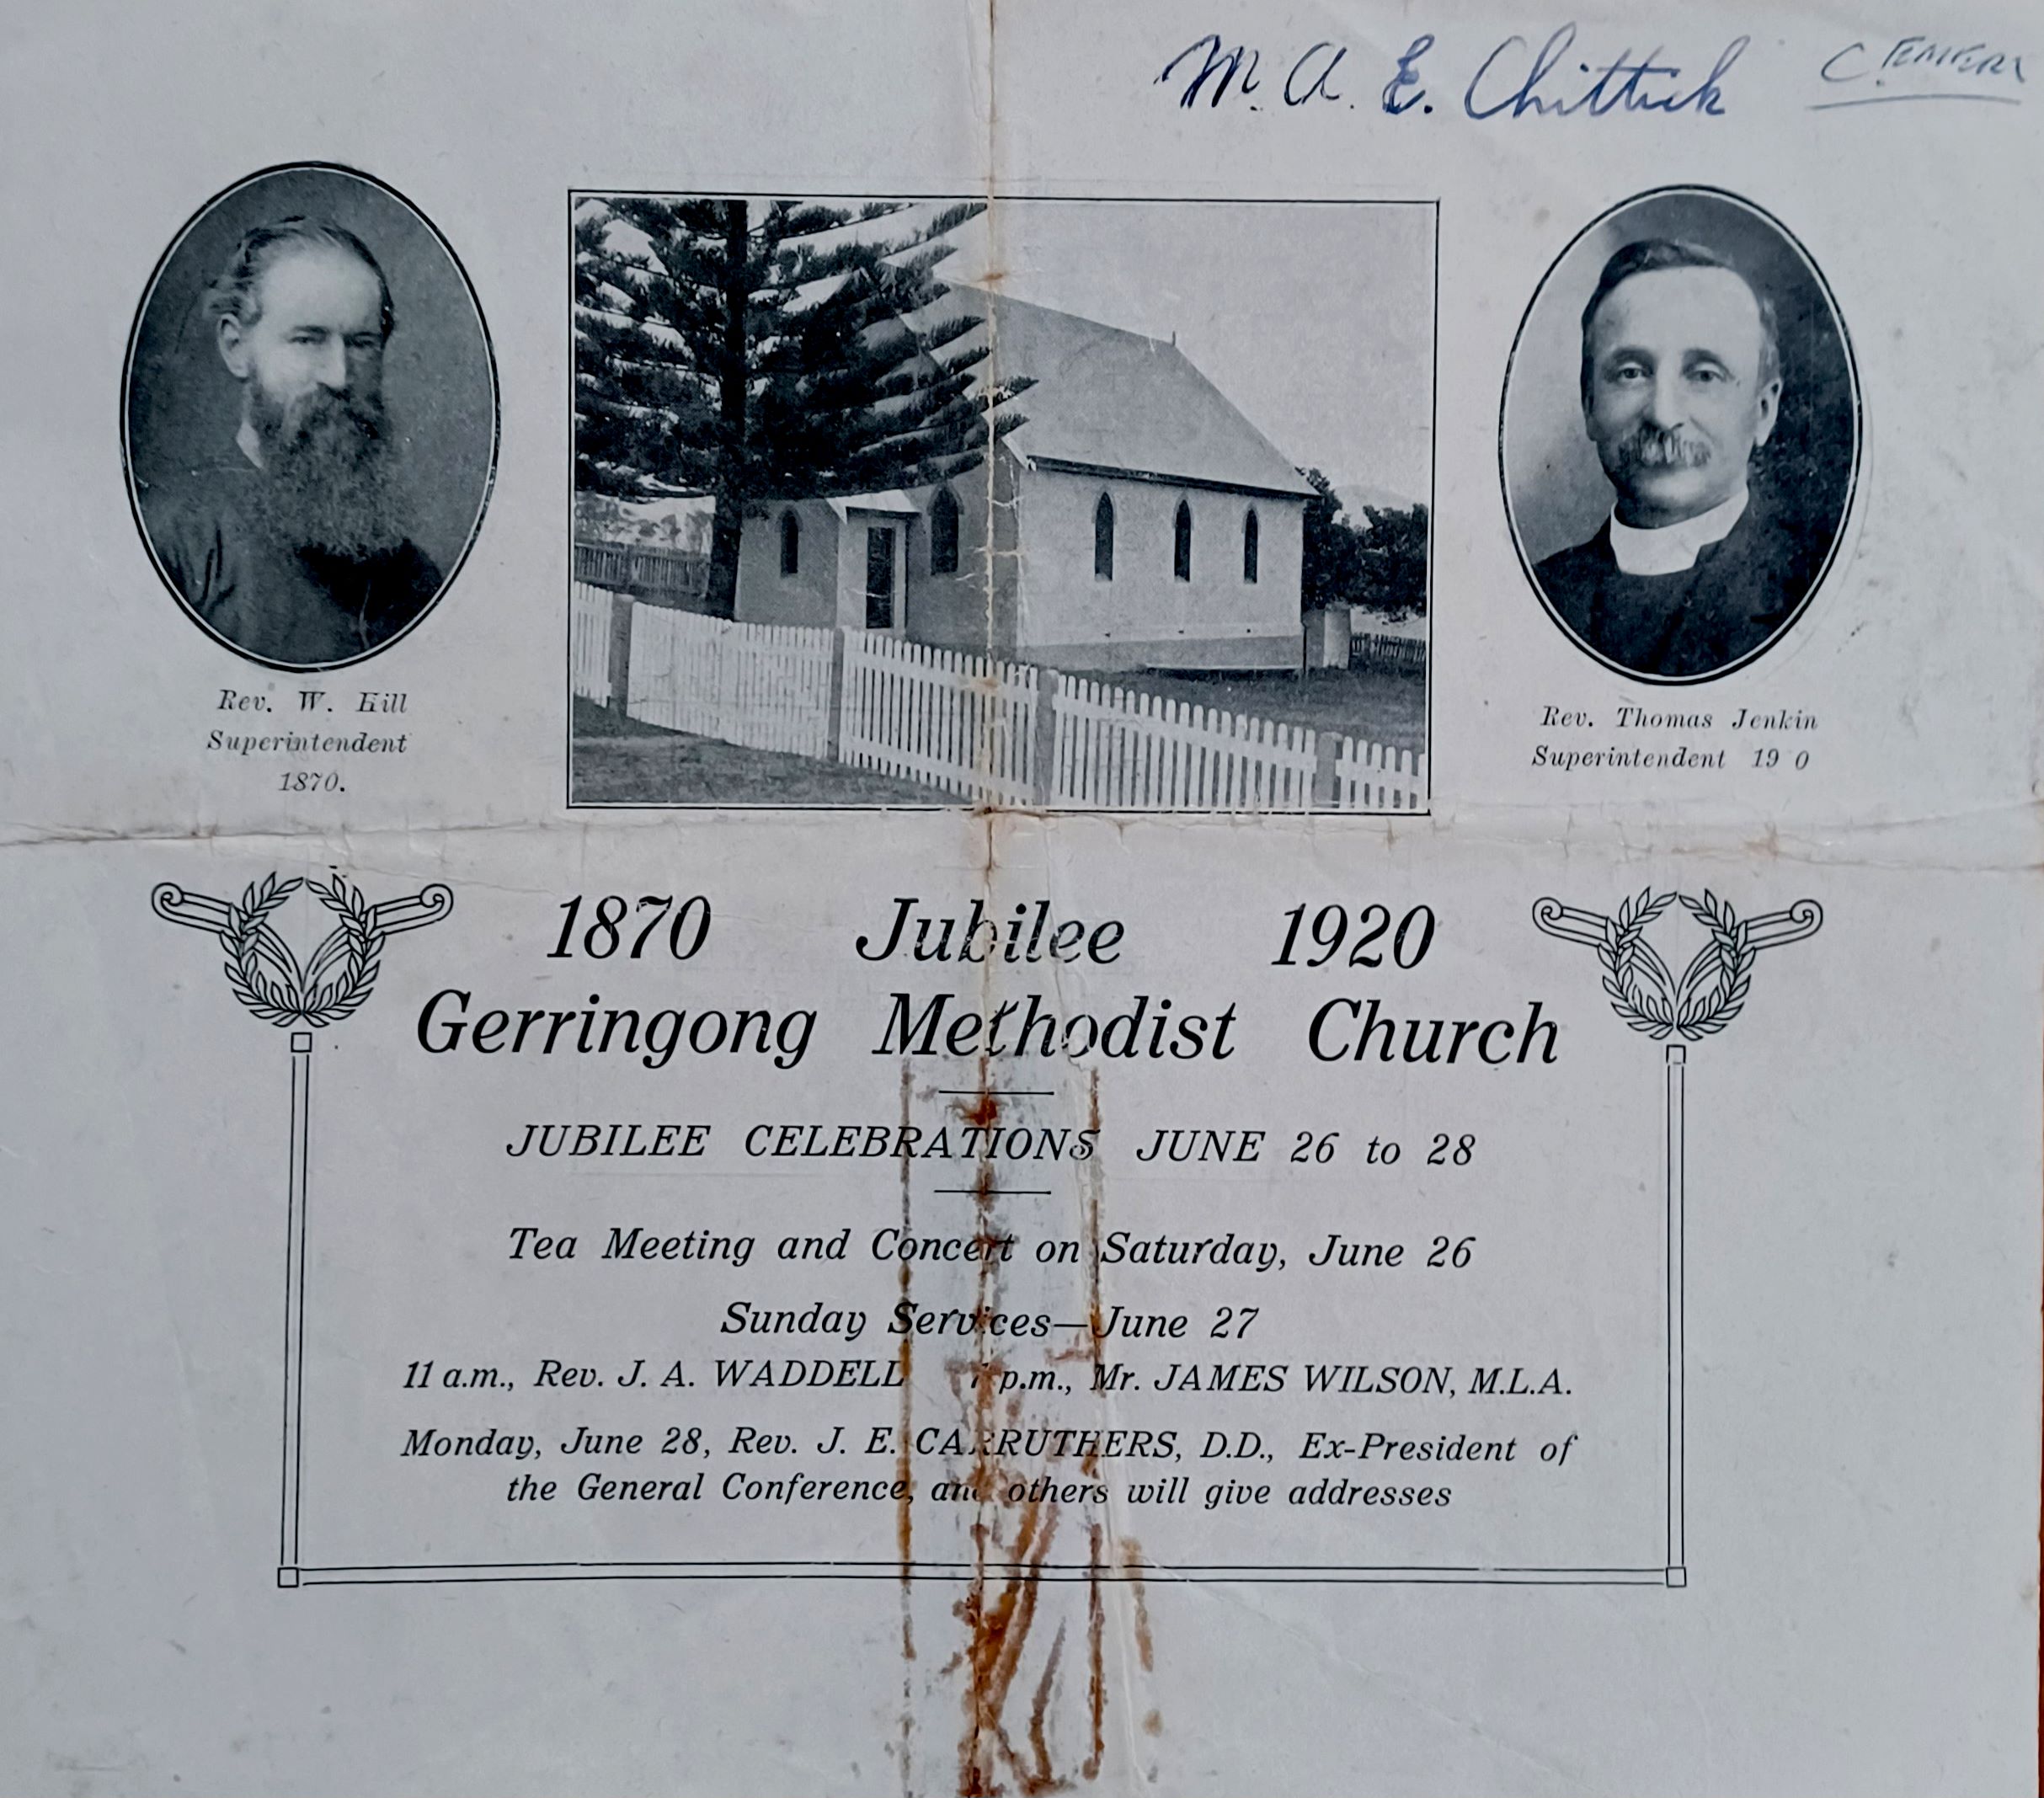 M. A. E. Chittick
Rev. W. Hill
Superintendent
1870.
Rev. Thomas Jenkin
Superintendent 19 0
1870 Jubilee 1920
Gerringong Methodist Church
JUBILEE CELEBRATIONS JUNE 26 to 28
Tea Meeting and Concert on Saturday, June 26
Sunday Services—June 27
11 a.m., Rev. J. A. WADDELL p.m., Mr. JAMES WILSON, M.L.A.
Monday, June 28, Rev. J. E. CARRUTHERS, D.D., Ex-President of
the General Conference, and others will give addresses